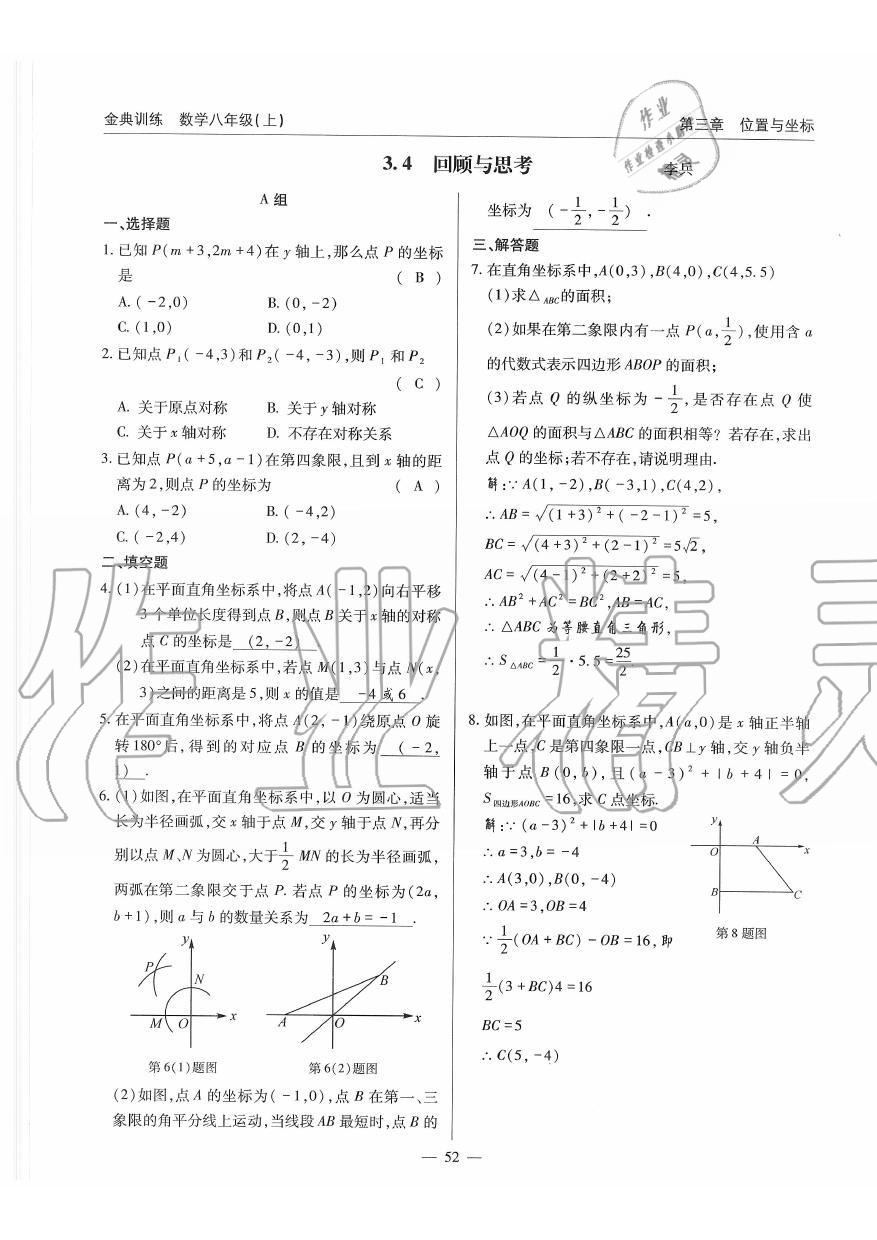 金典训练 数学八年级(上)
第三章 位置与坐标
作业
作业检查小助手
精灵
3.4 回顾与思考
李兵
A 组
一、选择题
1. 已知 P(m+3,2m+4)在 y 轴上,那么点 P 的坐标
是 ( B )
A. (-2,0) B. (0,-2)
C. (1,0) D. (0,1)
2. 已知点 P₁(-4,3)和 P₂(-4,-3),则 P₁ 和 P₂
( C )
A. 关于原点对称 B. 关于 y 轴对称
C. 关于 x 轴对称 D. 不存在对称关系
3. 已知点 P(a+5,a-1)在第四象限,且到 x 轴的距
离为 2,则点 P 的坐标为 ( A )
A. (4,-2) B. (-4,2)
C. (-2,4) D. (2,-4)
二、填空题
4. (1)在平面直角坐标系中,将点 A(-1,2)向右平移
3 个单位长度得到点 B,则点 B 关于 x 轴的对称
点 C 的坐标是 (2,-2)
(2)在平面直角坐标系中,若点 M(1,3)与点 N(x,
3)之间的距离是 5,则 x 的值是 -4 或 6 .
5. 在平面直角坐标系中,将点 A(2,-1)绕原点 O 旋
转 180°后,得到的对应点 B 的坐标为 (-2,
1) .
6. (1)如图,在平面直角坐标系中,以 O 为圆心,适当
长为半径画弧,交 x 轴于点 M,交 y 轴于点 N,再分
别以点 M、N 为圆心,大于 1/2 MN 的长为半径画弧,
两弧在第二象限交于点 P. 若点 P 的坐标为(2a,
b+1),则 a 与 b 的数量关系为 2a+b=-1 .
y P N M O x
y B A O x
第 6(1)题图 第 6(2)题图
(2)如图,点 A 的坐标为(-1,0),点 B 在第一、三
象限的角平分线上运动,当线段 AB 最短时,点 B 的
坐标为 (-1/2,-1/2) .
三、解答题
7. 在直角坐标系中,A(0,3),B(4,0),C(4,5.5)
(1)求△ABC的面积;
(2)如果在第二象限内有一点 P(a,1/2),使用含 a
的代数式表示四边形 ABOP 的面积;
(3)若点 Q 的纵坐标为 -1/2,是否存在点 Q 使
△AOQ 的面积与△ABC 的面积相等? 若存在,求出
点 Q 的坐标;若不存在,请说明理由.
解:∵A(1,-2),B(-3,1),C(4,2),
∴AB=√((1+3)²+(-2-1)²)=5,
BC=√((4+3)²+(2-1)²)=5√2,
AC=√((4-1)²+(2+2)²)=5,
∴AB²+AC²=BC²,AB=AC,
∴△ABC 为等腰直角三角形,
∴S△ABC=1/2·5.5=25/2
8. 如图,在平面直角坐标系中,A(a,0)是 x 轴正半轴
上一点,C 是第四象限一点,CB⊥y 轴,交 y 轴负半
轴于点 B(0,b),且(a-3)²+|b+4|=0,
S四边形AOBC=16,求 C 点坐标.
解:∵(a-3)²+|b+4|=0
∴a=3,b=-4
∴A(3,0),B(0,-4)
∴OA=3,OB=4
∵1/2(OA+BC)-OB=16,即
1/2(3+BC)4=16
BC=5
∴C(5,-4)
y A O x B C
第 8 题图
— 52 —
作业精灵